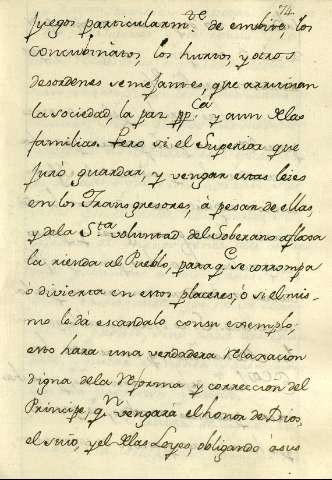 74.
juegos particularm.te de embite los
concubinatos, los hurtos y otros
desordenes semejantes, que arruinan
la sociedad, la paz pp.ca y aun Rlas
familias. Pero si el Superior que
juró guardar, y vengar estas leies
en los Transgresores, á pesar de ellas,
y dela S.ta voluntad del Soberano afloxa
la rienda al Pueblo, para q.e se corrompa
ó divierta en estos placeres, ó si el mis-
mo le dá escandalo con su exemplo,
esto hara una verdadera relaxacion
digna dela reforma y correccion del
Principe, q.n vengará el honor de Dios,
el suio, y el Rlas Leyes, obligando á sus